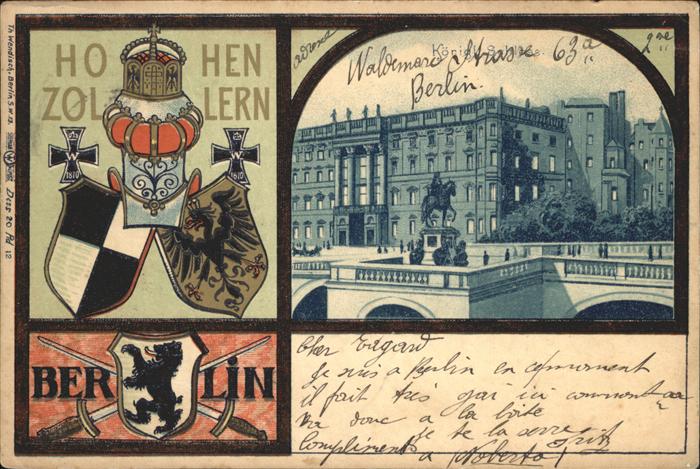 HOHEN
ZOLLERN
W
1870
W
1870
BERLIN
Th. Wendisch, Berlin S.W. 13.
Dess. 20 Pat 12
Königl. Schloss.
adresse
Waldemare Strasse 63a
Berlin.
Cher Edgard
Je suis a Berlin en ce moment
il fait très gai ici comment
va donc a la boite
je te la serre Fritz
Compliments a Norberto